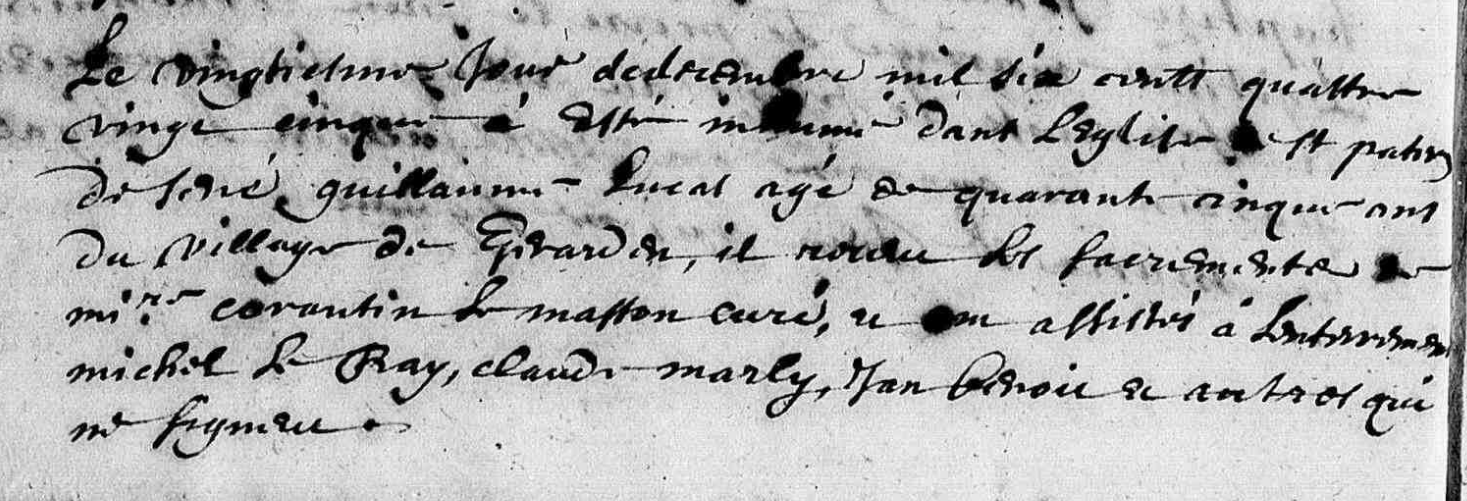 Le vingtiesme Jour dedecembre mil six centt quattre
vingt cinque a esté inhumé dans Leglise de st patern
de sené, guillaume Lucas agé de quarante cinque ans
du village de Gerarden, il receu les sacremente de
mire corantin Le masson curé, et on assistés à Lenterremen
michel Le Ray, claude marly, Jan benoit et autres qui
ne signeut